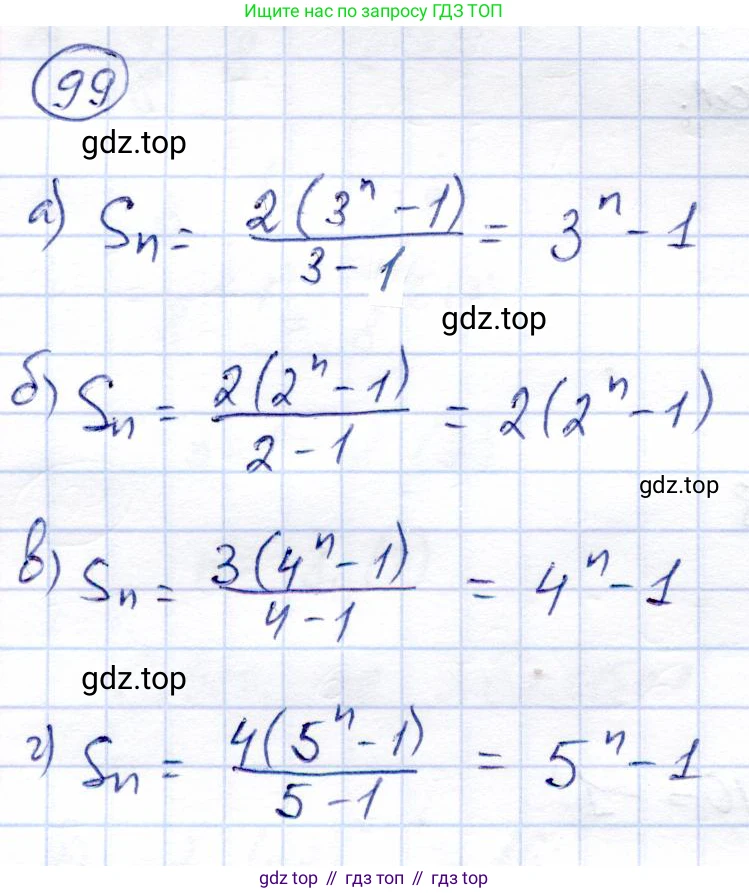 Ищите нас по запросу ГДЗ ТОП
99
gdz.top
а) Sn = 2(3^n - 1) / 3 - 1 = 3^n - 1
gdz.top
б) Sn = 2(2^n - 1) / 2 - 1 = 2(2^n - 1)
gdz.top
в) Sn = 3(4^n - 1) / 4 - 1 = 4^n - 1
gdz.top
г) Sn = 4(5^n - 1) / 5 - 1 = 5^n - 1
gdz top // гдз топ // gdz.top